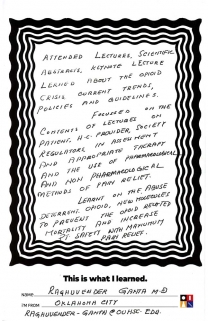 ATTENDED LECTURES, SCIENTIFIC
ABSTRACTS, KEYNOTE LECTURE
LERNED ABOUT THE OPIOID
CRISIS CURRENT TRENDS,
POLICIES AND GUIDELINES.
FOCUSED ON THE
CONTENTS OF LECTURES ON
PATIENT, H.C. PROVIDER, SOCIETY
REGULATORS IN ASSESSMENT
AND APPROPRIATE THERAPY
AND THE USE OF PHARMACOLOGICAL
AND NON PHARMACOLOGICAL
METHODS OF PAIN RELIEF.
LEARNT ON THE ABUSE
DETERRENT OPIOID, NEW MOLECULES
TO PREVENT THE OPIOID RELATED
MORTALITY AND INCREASE
PT SAFETY WITH MAXIMUM
PAIN RELIEF.
This is what I learned.
RAGHUVENDER GANTA M.D
I'M FROM
OKLAHOMA CITY
RAGHUVENDER-GANTA@OUHSC.EDU.